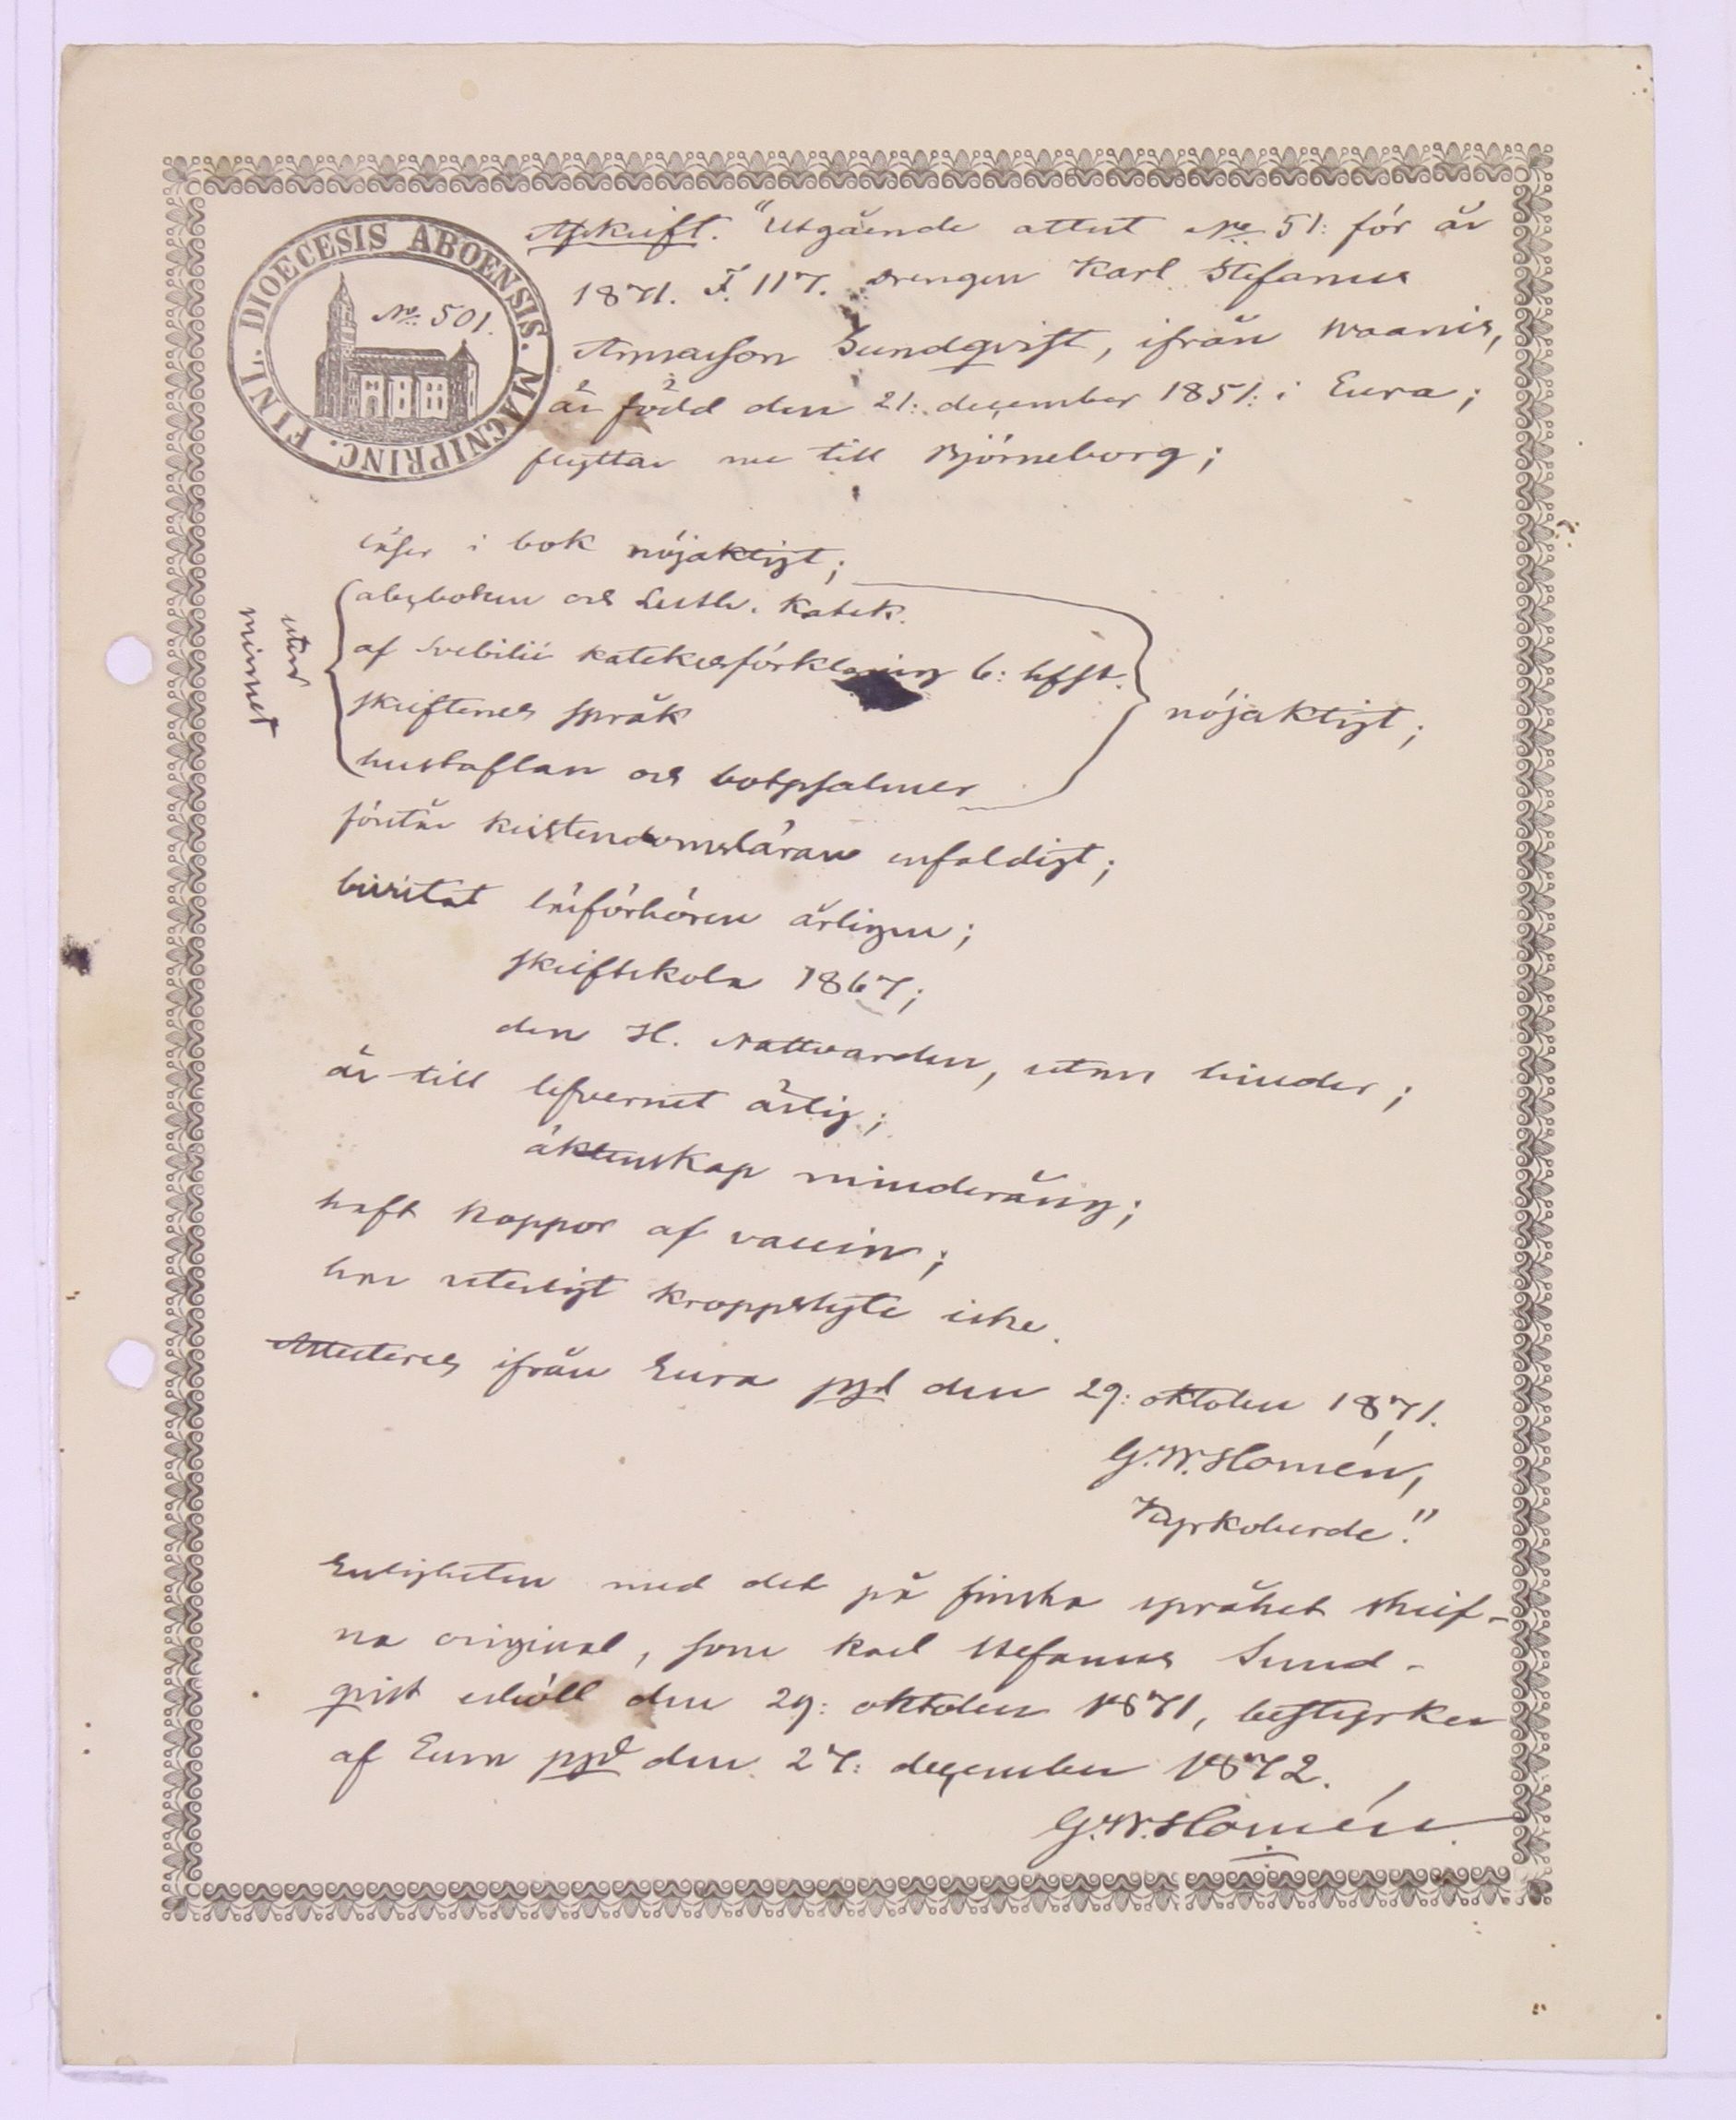 DIOECESIS ABOENSIS. MAGNIPRINC. FINL.
No. 501.
Afskrift. "Utgående attest No 51: för år
1871. F. 117. Drengen Karl Stefanus
Annasson Sundqvist, ifrån Waanis,
är född den 21: december 1851: i Eura;
flyttar nu till Björneborg;
läser i bok nöjaktigt;
utur minnet
abcboken och Luth. Katek.
af Svebilii katekesförklaring 6: hfst.
skriftenes språk
hustaflan och botpsalmer
nöjaktigt;
förstår kristendomsläran enfaldigt;
bivistat läsförhören årligen;
skriftskola 1867;
den H. Nattvarden, utan hinder;
är till lefvernet ärlig;
äktenskap minderårig;
haft koppor af vaccin;
har uterligt kroppslyte icke.
Attesteres ifrån Eura pgd den 29: oktober 1871.
G. W. Homén,
Kyrkoherde."
Enligheten med det på finska språket skrif-
na original, som Karl Stefanus Sund-
qvist erhöll den 29: oktober 1871, bestyrker
af Eura pgd den 27: december 1872.
G. W. Homén